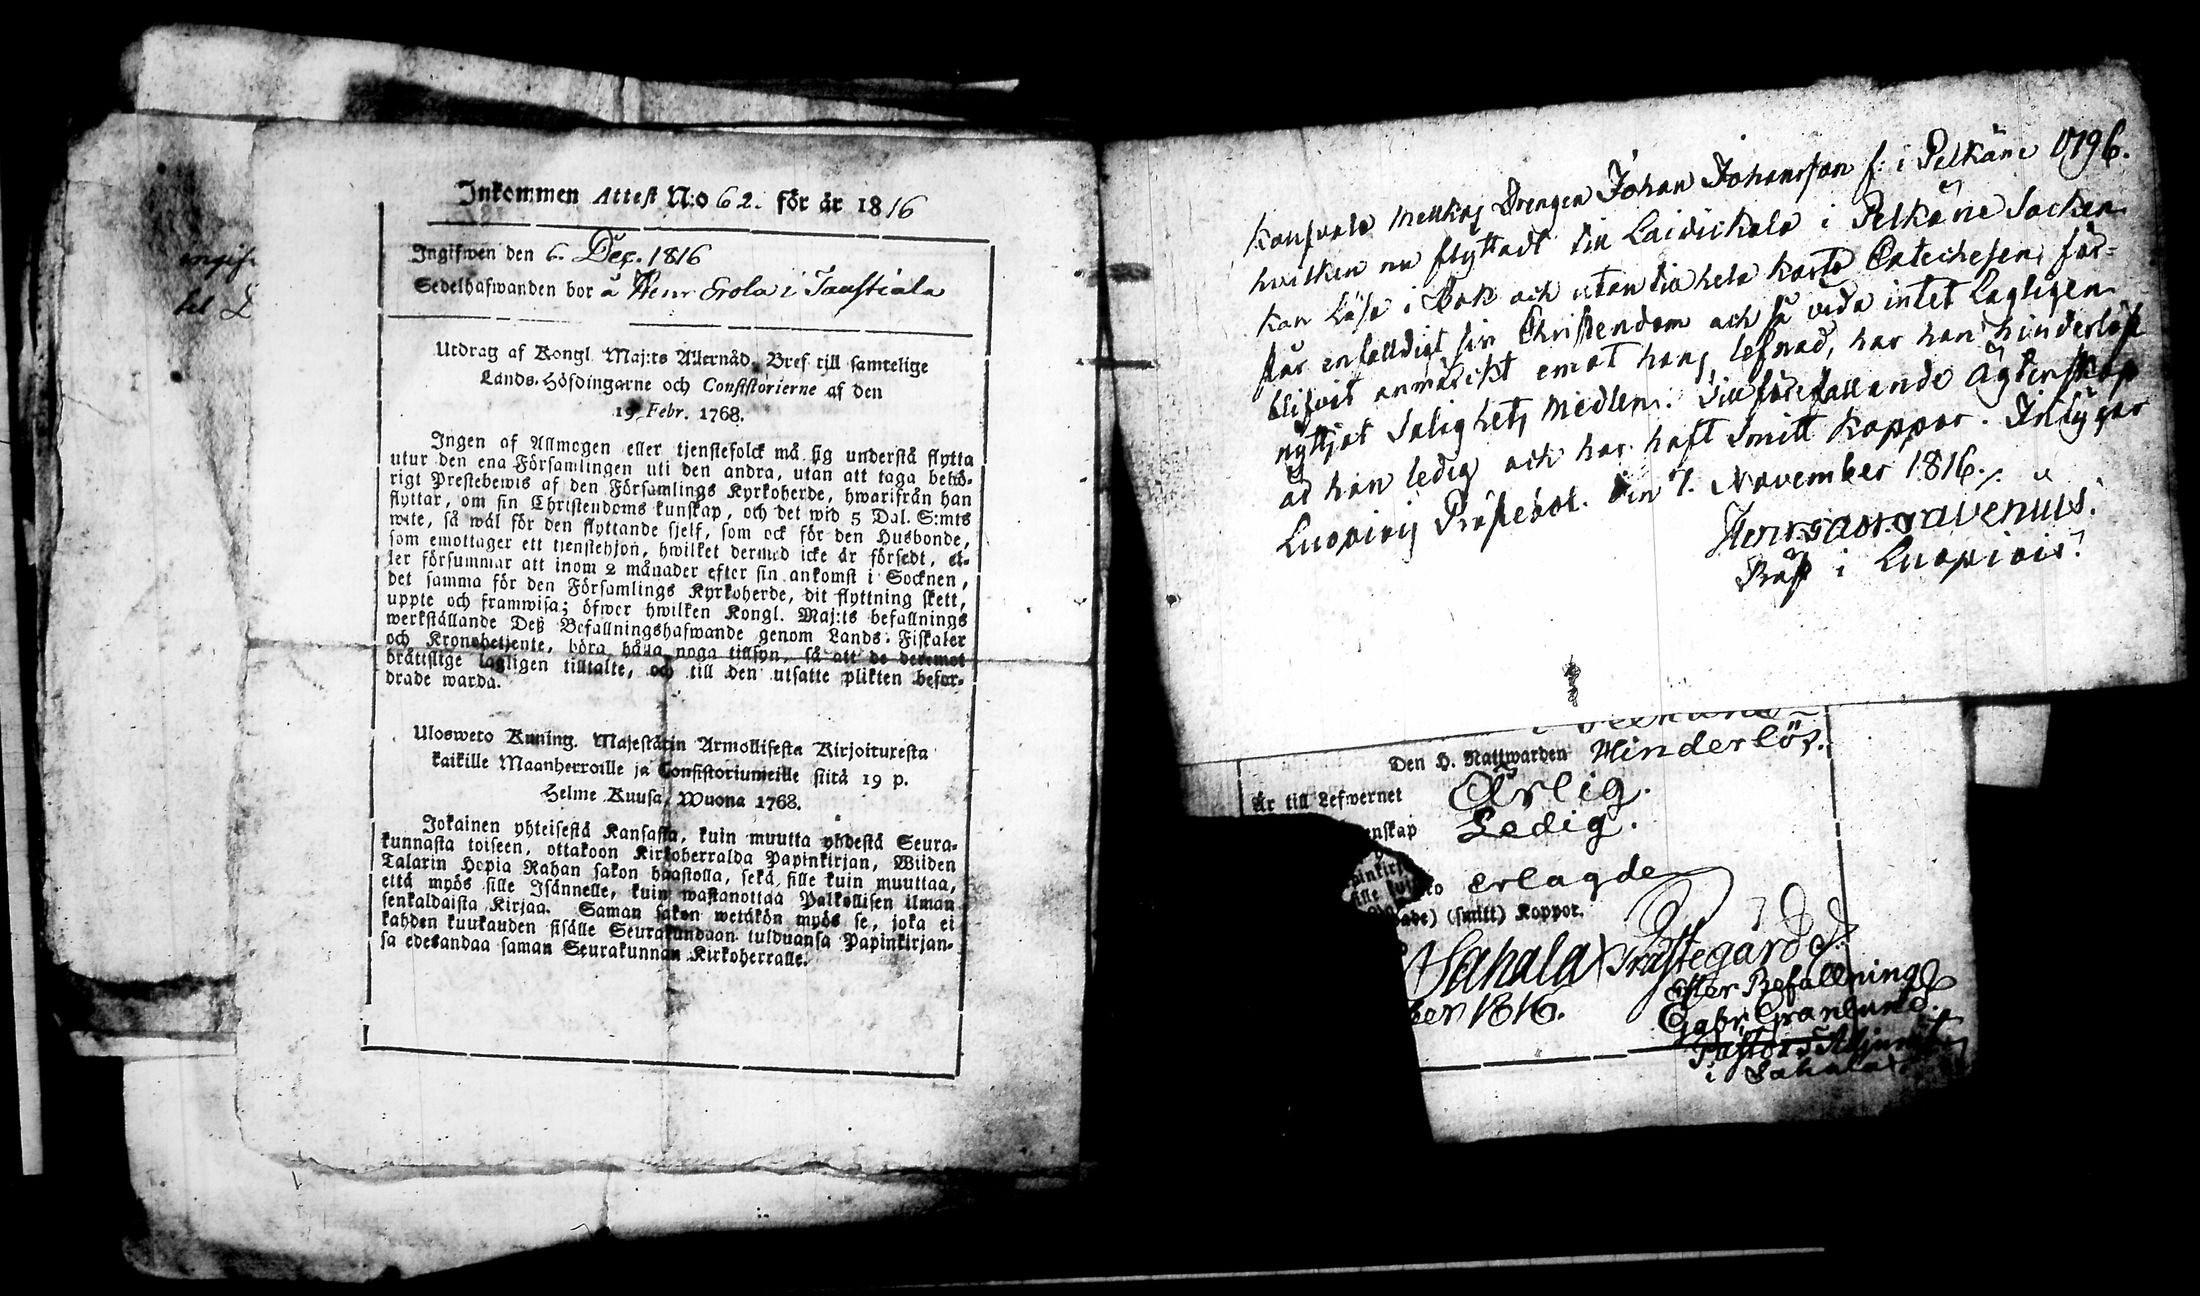 Inkommen Attest N:o 62. för år 1816
Ingifwen den 6. Dec. 1816
Sedelhafwanden bor å Henr Erola i Taustiala
Utdrag af Kongl. Maj:ts Allernåd. Bref till samtelige
Lands-Höfdingarne och Consistorierne af den
19 Febr. 1768.
Ingen af Allmogen eller tjenstefolck må sig understå flytta
utur den ena Församlingen uti den andra, utan att taga behö-
rigt Prestebewis af den Församlings Kyrkoherde, hwarifrån han
flyttar, om sin Christendoms kunskap, och det wid 5 Dal. S:mts
wite, så wäl för den flyttande sjelf, som ock för den Husbonde,
som emottager ett tjenstehjon, hwilket dermed icke är försedt, el-
ler försummar att inom 2 månader efter sin ankomst i Socknen,
det samma för den Församlings Kyrkoherde, dit flyttning skett,
uppte och framwisa; öfwer hwilken Kongl. Maj:ts befallnings
werkställande Deß Befallningshafwande genom Lands-Fiskaler
och Kronobetjente, böra hålla noga tillsyn, så att de deremot
bråttslige lagligen tilltalte, och till den utsatte plikten befor-
drade warda.
Ulosweto Kuning. Majestätin Armollisesta Kirjoituxesta
kaikille Maanherroille ja Consistoriumeille siitä 19 p.
Helme Kuusa, Wuona 1768.
Jokainen yhteisestä Kansasta, kuin muutta yhdestä Seura-
kunnasta toiseen, ottakoon Kirkoherralda Papinkirjan, Wiiden
Talarin Hopia Rahan sakon haastolla, sekä sille kuin muuttaa,
että myös sille Isännelle, kuin wastanottaa Palkollisen ilman
senkaldaista Kirjaa. Saman sakon wetäkön myös se, joka ei
kahden kuukauden sisälle Seurakundaan tulduansa Papinkirjan-
sa edesandaa saman Seurakunnan Kirkoherralle.
Drengen Johan Johansson f: i Pelkäne 1796.
hvilken nu flyttadt till Laidickala i Pelkäne Socken
kan läsa i Bok och utan till hela korta Catechesen, för-
står enfalldigt sin Christendom och så vida intet Lagligen
blifvit anmärckt emot hans lefnad, har han hinderlöst
nyttjat Salighets Medlen. Till förefallande Ägtenskap
är han ledig och har haft Smitt koppor. Intygar
Luopiois Prästebol. den 7. November 1816.
Præst i Luopiois.
Den H. Nattwarden Hinderlös.
Är till Lefwernet Ärlig.
enskap Ledig.
erlagde
ade) (smitt) Koppor.
Sahalax Prästegård d.
ber 1816.
Efter Befallning
Gabr. Granlund.
Pastors Adjunct
i Sahalax.